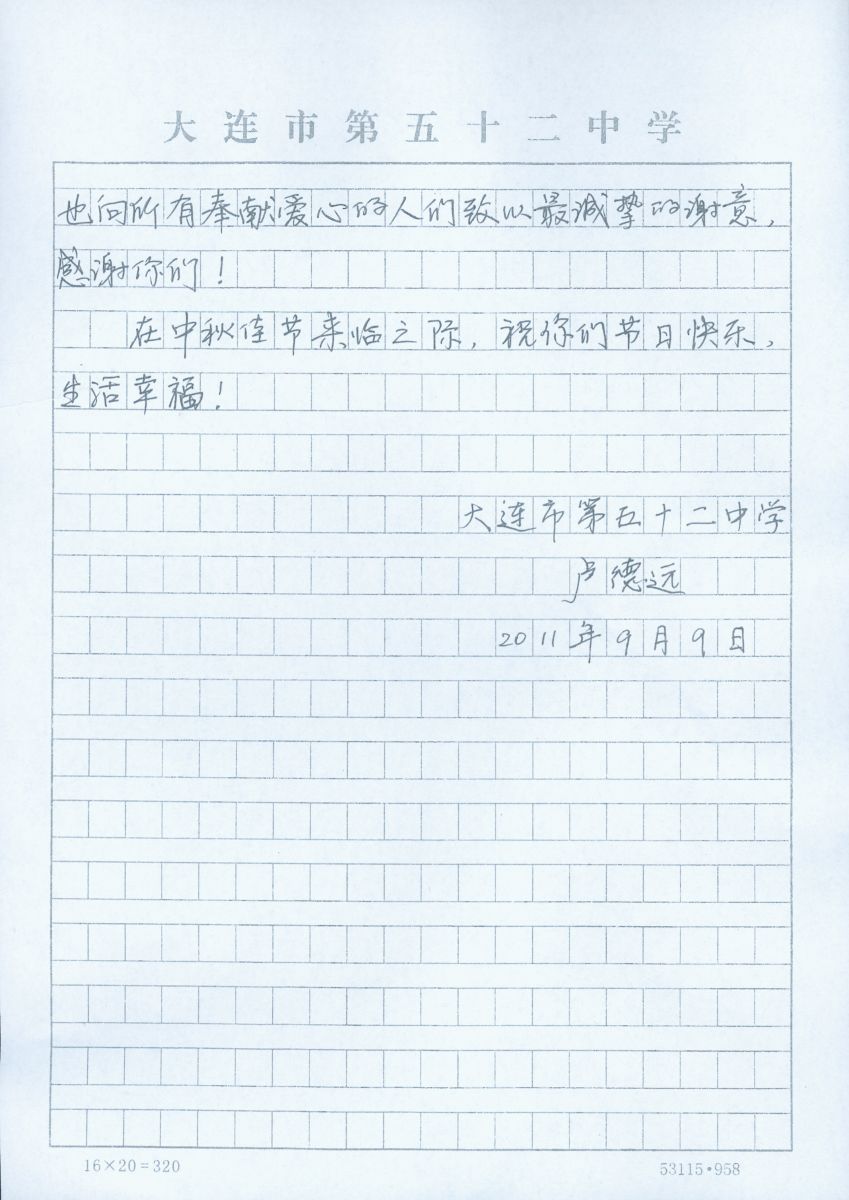 大连市第五十二中学
也向所有奉献爱心的人们致以最诚挚的谢意，
感谢你们！
在中秋佳节来临之际，祝你们节日快乐，
生活幸福！
大连市第五十二中学
卢德远
2011年9月9日
16×20=320
53115·958